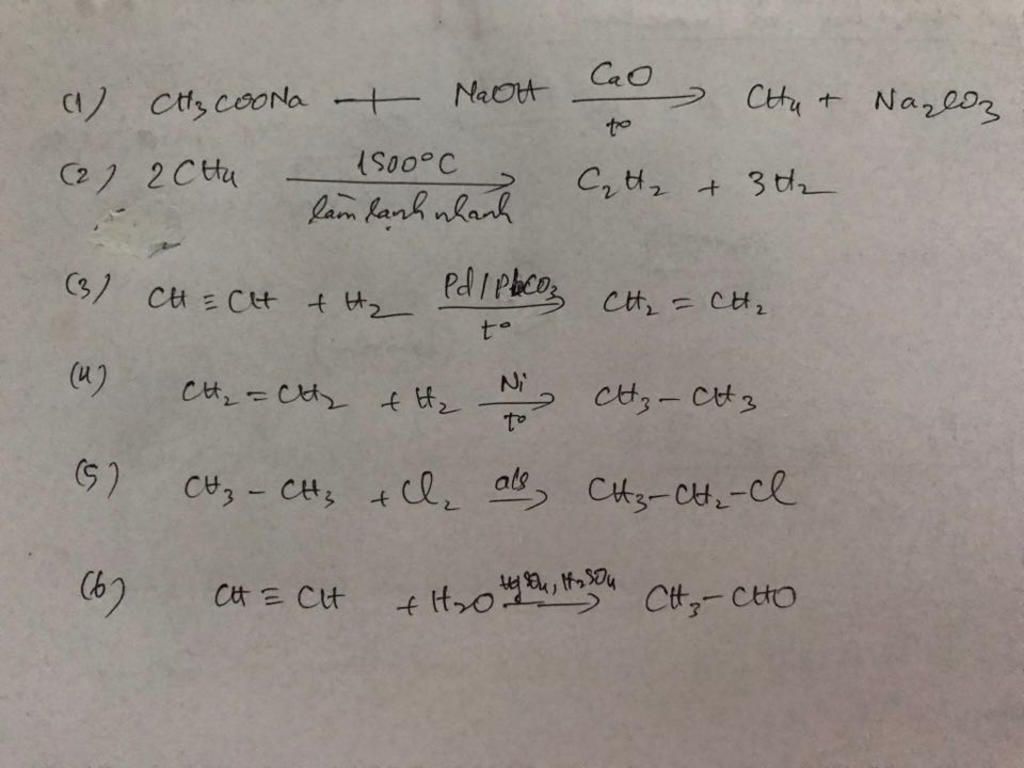 (1) CH3COONa + NaOH CaO → t° CH4 + Na2CO3
(2) 2CH4 1500°C → làm lạnh nhanh C2H2 + 3H2
(3) CH ≡ CH + H2 Pd/PbCO3 → t° CH2 = CH2
(4) CH2 = CH2 + H2 Ni → t° CH3 – CH3
(5) CH3 – CH3 + Cl2 as → CH3–CH2–Cl
(6) CH ≡ CH + H2O HgSO4, H2SO4 → CH3–CHO